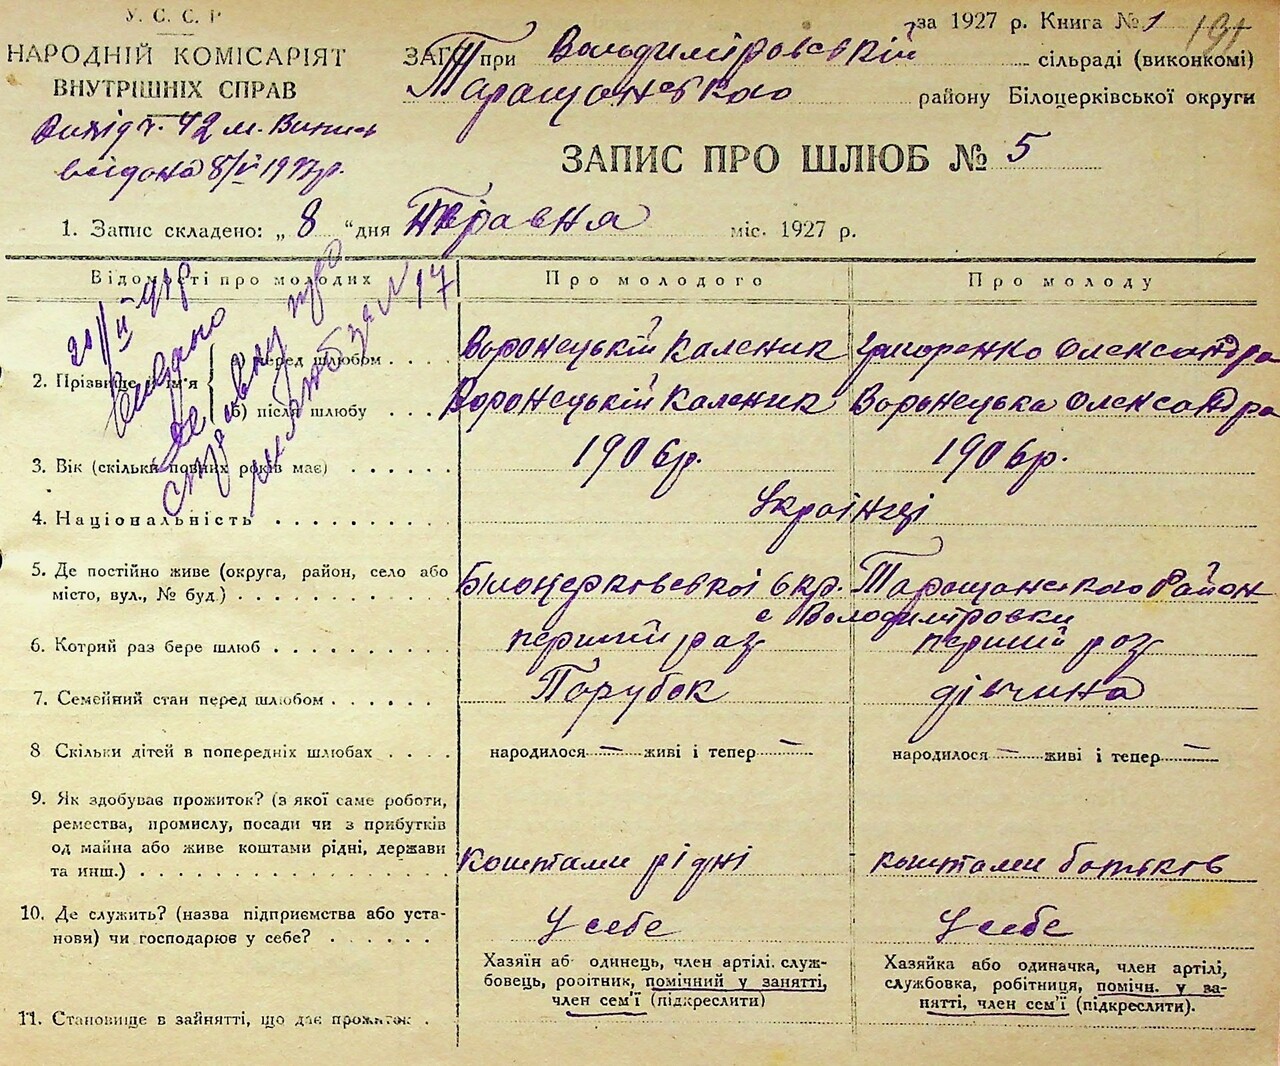 У. С. С. Р
НАРОДНІЙ КОМІСАРІЯТ
ВНУТРІШНІХ СПРАВ
за 1927 р. Книга № 1 191
ЗАГС при Володимирівській сільраді (виконкомі)
Таращанського району Білоцерківської округи
42 м. Випис
видана 8/V 1927р.
ЗАПИС ПРО ШЛЮБ № 5
1. Запис складено: „ 8 “ дня Травня міс. 1927 р.
Відомості про молодих
Про молодого
Про молоду
видано
справку про
шлюб за № 17
2. Прізвище й ім'я
а) перед шлюбом . . . Воронецькій Каленик Григоренко Олександра
б) після шлюбу . . . Воронецькій Каленик Воронецька Олександра
3. Вік (скільки повних років має) . . . . . . 1906р. 1906р.
4. Національність . . . . . . . . . . Українці
5. Де постійно живе (округа, район, село або
місто, вул., № буд.) . . . . . . . . . . Білоцерковської окр. Таращанського Район
с Володимировки
6. Котрий раз бере шлюб . . . . . . . . . . перший раз перший раз
7. Семейний стан перед шлюбом . . . . . . Парубок дівчина
8 Скільки дітей в попередніх шлюбах . . . . народилося — живі і тепер — народилося — живі і тепер —
9. Як здобував прожиток? (з якої саме роботи,
ремества, промислу, посади чи з прибутків
од майна або живе коштами рідні, держави
та инш.) . . . . . . . . . . . . . . . коштами рідні коштами батьків
10. Де служить? (назва підприємства або уста-
нови) чи господарює у себе? . . . . . . У себе У себе
Хазяїн аб одинець, член артілі. служ-
бовець, робітник, помічний у занятті,
член сем'ї (підкреслити)
Хазяйка або одиначка, член артілі,
службовка, робітниця, помічн. у за-
нятті, член сем'ї (підкреслити).
11. Становище в зайнятті, що дає прожиток .